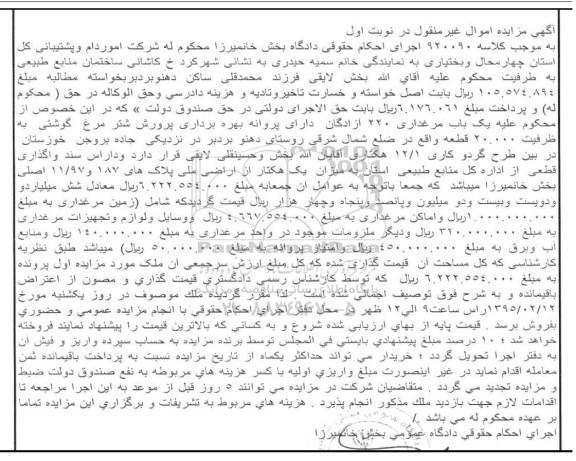 آگهي مزايده اموال غيرمنقول در نوبت اول
به موجب كلاسه ۹۲۰۰۹۰ اجراي احكام حقوقي دادگاه بخش خانميرزا محكوم له شركت اموردام وپشتيباني كل
استان چهارمحال وبختياري به نمايندگي خانم سميه حيدري به نشاني شهركرد خ كاشاني ساختمان منابع طبيعي
به طرفيت محكوم عليه آقاي الله بخش لايقي فرزند محمدقلي ساكن دهنوبردبربخواسته مطالبه مبلغ
۱۰۵.۵۷۴.۸۹۴ ريال بابت اصل خواسته و خسارت تاخيروتاديه و هزينه دادرسي وحق الوكاله در حق ( محكوم
له) و پرداخت مبلغ ۶.۱۷۶.۰۶۱ريال بابت حق الاجراي دولتي در حق صندوق دولت » كه در اين خصوص از
محكوم عليه يک باب مرغداري ۲۲۰ آزادگان داراي پروانه بهره برداري پرورش شتر مرغ گوشتي به
ظرفيت ۲۰.۰۰۰ قطعه واقع در ضلع شمال شرقي روستاي دهنو بردبر در نزديكي جاده بروجن خوزستان
در بين طرح گردو كاري ۱۲/۱ هكتاري آقايان الله بخش وحسينقلي لايقي قرار دارد وداراس سند واگذاري
قطعي از اداره كل منابع طبيعي استان به ميزان يک هكتار از اراضي ملي پلاک هاي ۱۸۷ و۱۱/۹۷ اصلي
بخش خانميرزا ميباشد كه جمعا باتوجه به عوامل ان جمعابه مبلغ ۶.۲۲۲.۵۵۴.۰۰۰ريال معادل شش ميليارددو
ودويست وبيست ودو ميليون وپانصدوپنجاه وچهار هزار ريال قيمت گرديدكه شامل (زمين مرغداري به مبلغ
۱.۰۰۰.۰۰۰.۰۰۰ريال واماكن مرغداري به مبلغ ۴.۶۶۷.۵۵۴.۰۰۰ ريال ووسايل ولوازم وتجهيزات مرغداري
به مبلغ ۳۲۰.۰۰۰.۰۰۰ ريال وديگر ملزومات موجود در واحد مرغداري به مبلغ ۱۴۰.۰۰۰.۰۰۰ ريال ومنابع
آب وبرق به مبلغ ۴۵۰.۰۰۰.۰۰۰ريال وامتياز پروانه به مبلغ ۵۰.۰۰۰.۰۰۰ ريال) ميباشد طبق نظريه
كارشناسي كه كل مساحت آن قيمت گذاري شده كه كل مبلغ ارزش سرجمعي آن ملک مورد مزايده اول پرونده
به مبلغ ۶.۲۲۲.۵۵۴.۰۰۰ ريال كه توسط كارشناس رسمي دادگستري قيمت گذاري و مصون از اعتراض
باقيمانده و به شرح فوق توصيف اجمالي شده است . لذا مقرر گرديده ملک موصوف در روز يكشنبه مورخ
۱۳۹۵/۰۲/۱۲راس ساعت۹ الي۱۲ ظهر در محل دفتر اجراي احكام حقوقي با انجام مزايده عمومي و حضوري
بفروش برسد . قيمت پايه از بهاي ارزيابي شده شروع و به كساني كه بالاترين قيمت را پيشنهاد نمايند فروخته
خواهد شد ؛ ۱۰ درصد مبلغ پيشنهادي بايستي في المجلس توسط برنده مزايده به حساب سپرده واريز و فيش ان
به دفتر اجرا تحويل گردد ؛ خريدار مي تواند حداكثر يكماه از تاريخ مزايده نسبت به پرداخت باقيمانده ثمن
معامله اقدام نمايد در غير اينصورت مبلغ واريزي اوليه با كسر هزينه هاي مربوطه به نفع صندوق دولت ضبط
و مزايده تجديد مي گردد . متقاضيان شركت در مزايده مي توانند ۵ روز قبل از موعد به اين اجرا مراجعه تا
اقدامات لازم جهت بازديد ملک مذكور انجام پذيرد . هزينه هاي مربوط به تشريفات و برگزاري اين مزايده تماما
بر عهده محكوم له مي باشد ./
اجراي احكام حقوقي دادگاه عمومي بخش خانميرزا